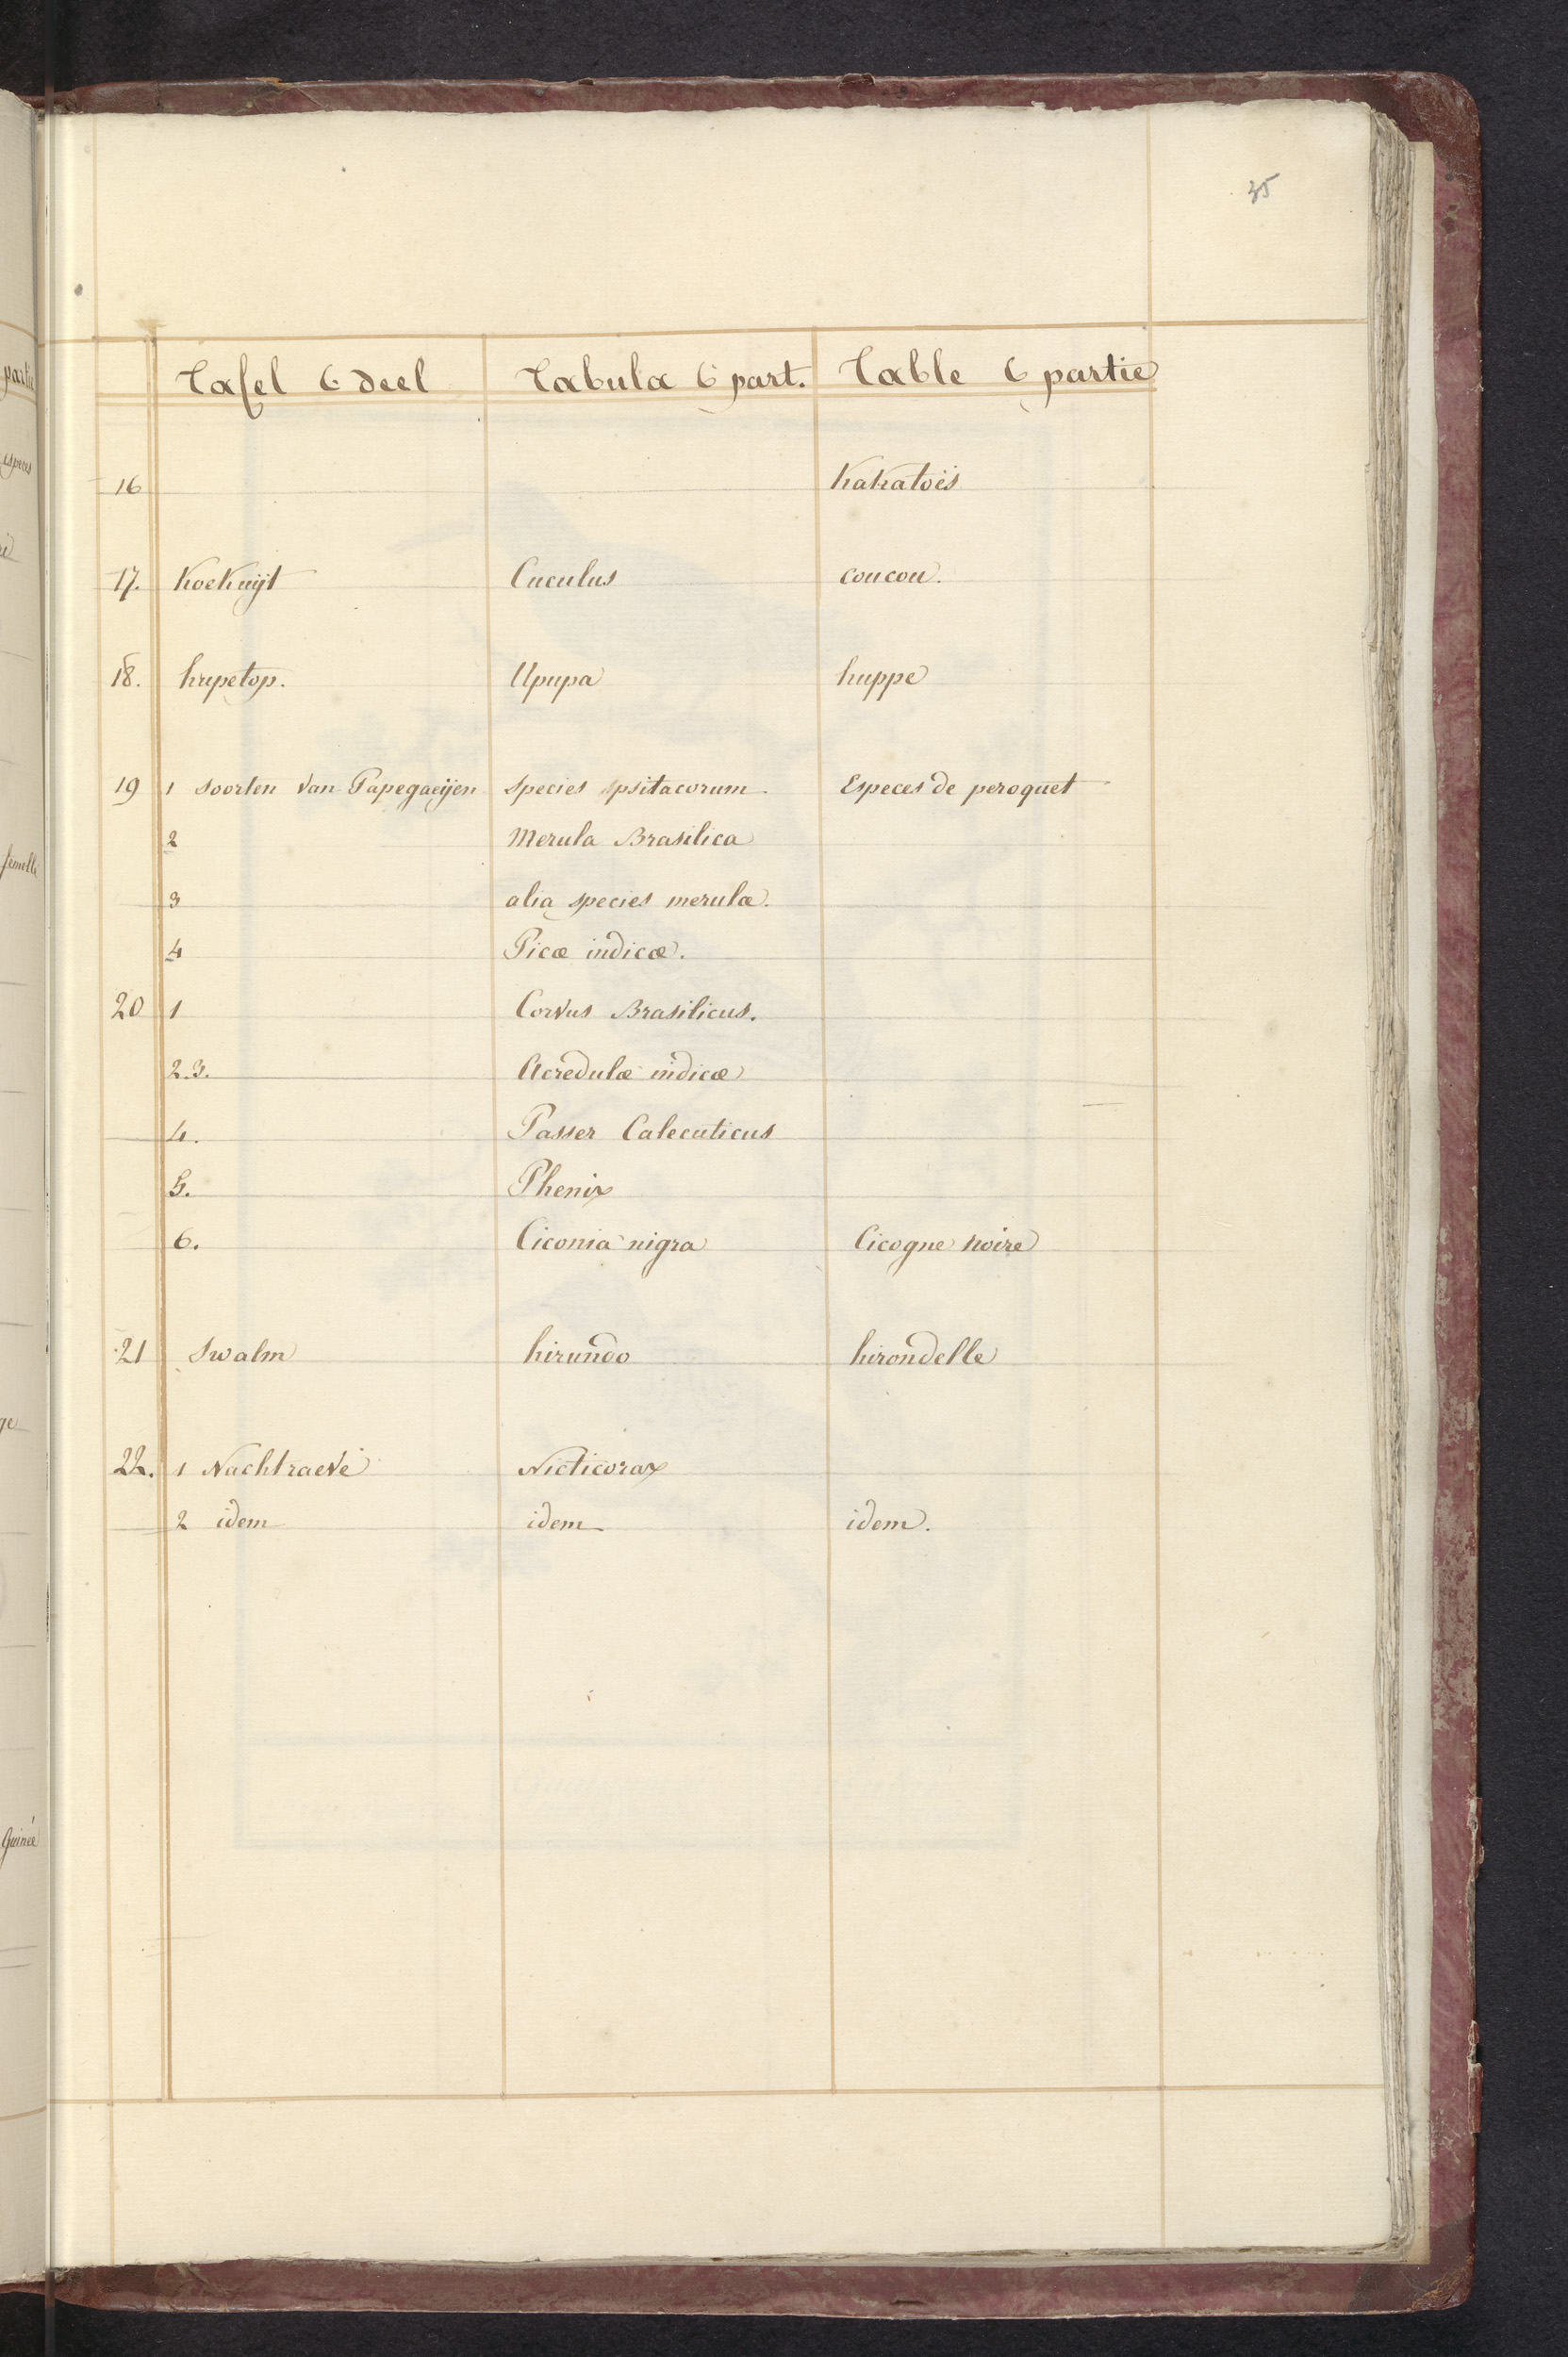 35
Tafel 6 deel Tabula 6 part. Table 6 partie
16 Kakatoës
17. Koekuÿt Cuculus coucou.
18. hupetop. Upupa huppe
19 1 soorten van Papegaeÿen species spsitacorum. Especes de peroquet
2 Merula Brasilica
3 alia species merulæ.
4 Picæ indicæ.
20 1 Corvus Brasilicus.
2.3. Acredulæ indicæ
4. Passer Calecuticus
5. Phenix
6. Ciconia nigra Cicogne noire
21 Swalm hirundo hirondelle
22. 1 Nachtraeve Nicticorax
2 idem idem idem.
partie
especes
femelle
ge
Guinée